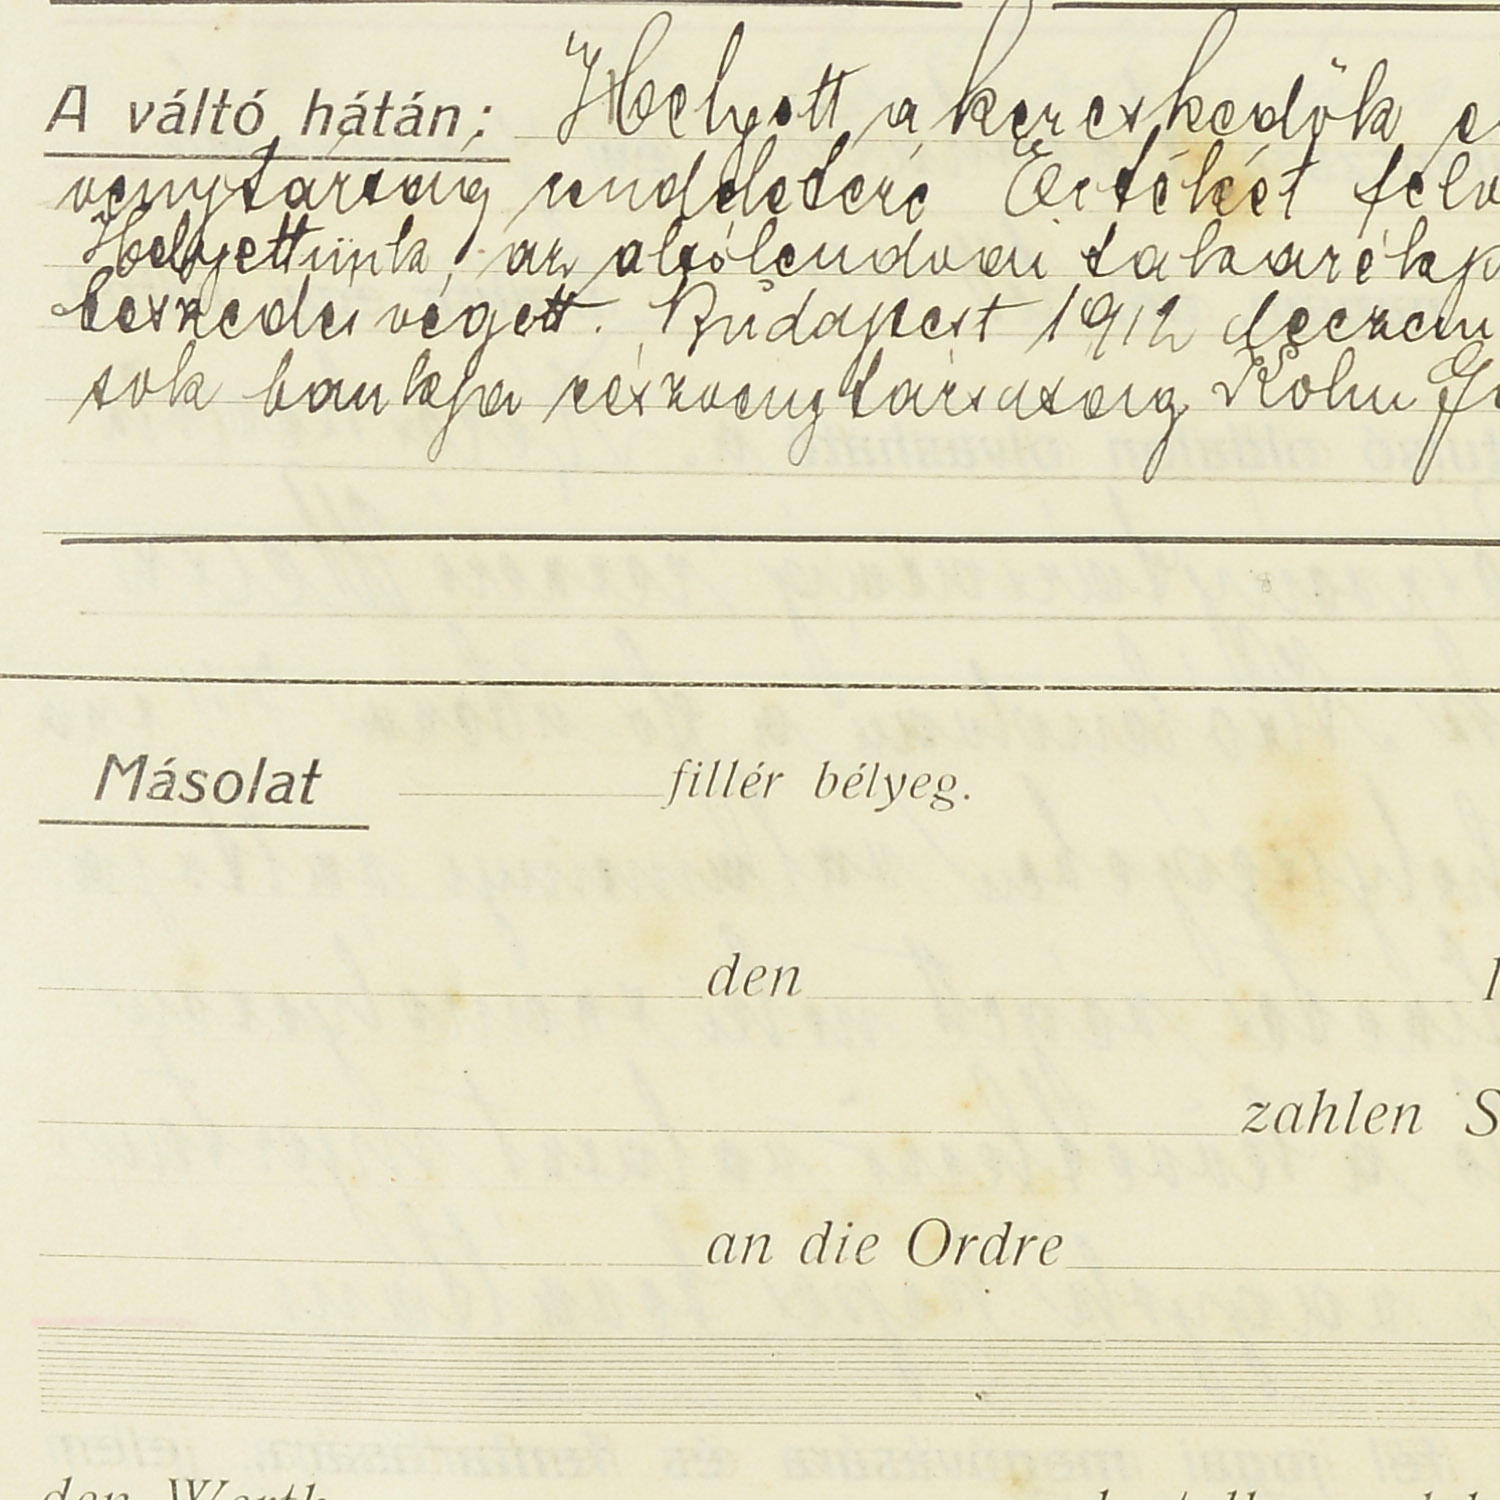 A váltó hátán: Helyett a kereskedők
venytársaság rendeletére Értékét felv
Helyettünk az alsólendvai takarékp
beszedés végett. Budapest 1912 deczem
sok bankja részvenytársaság Kohn
Másolat fillér bélyeg.
den
zahlen S
an die Ordre
den Werth